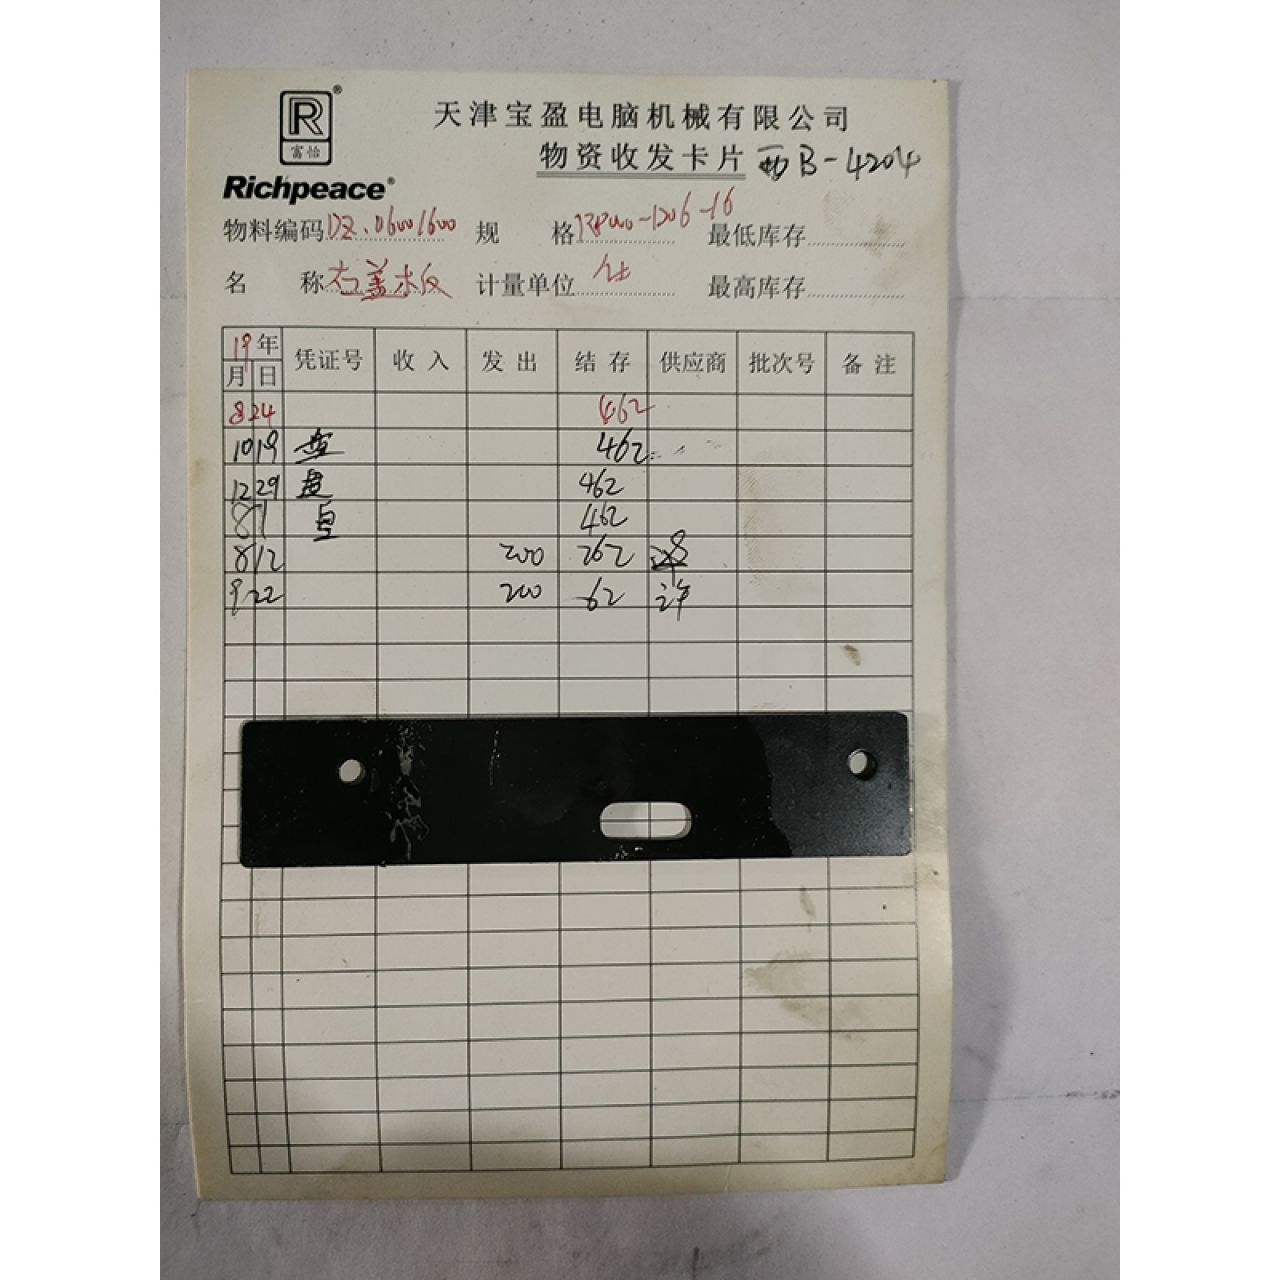 R®
富怡
Richpeace®
天津宝盈电脑机械有限公司
物资收发卡片 西B-4204
物料编码DZ.06001600 规格 -1206-16 最低库存
名称右盖板 计量单位 件 最高库存
19年 月 日 凭证号 收入 发出 结存 供应商 批次号 备注
8 24 462
10 19 盘 462
12 29 盘 462
8 1 盘 462
8 12 200 262
9 22 200 62 许